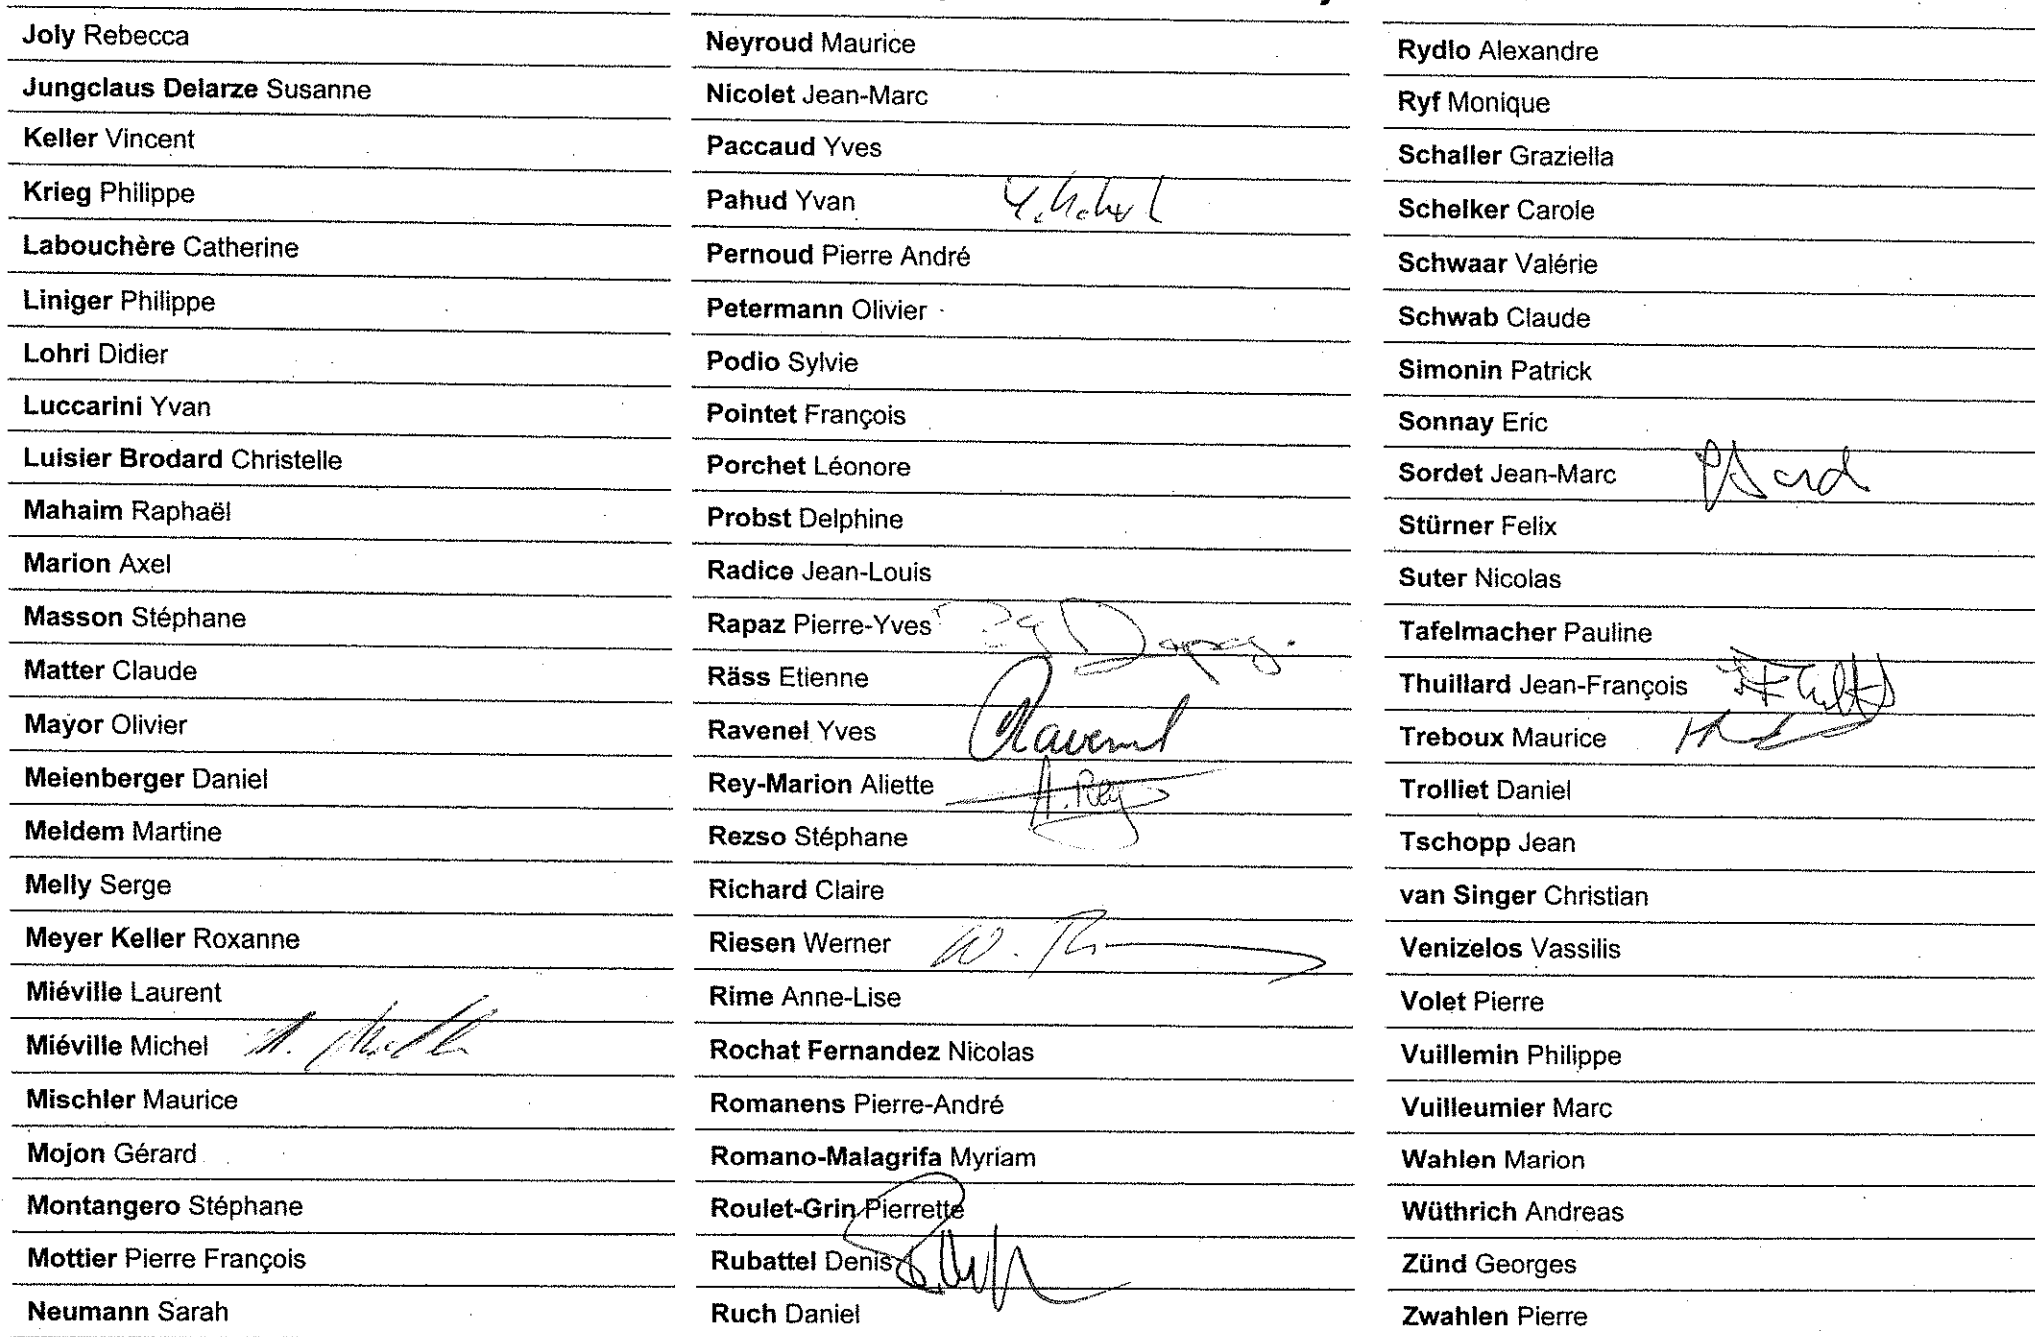 Joly Rebecca
Jungclaus Delarze Susanne
Keller Vincent
Krieg Philippe
Labouchère Catherine
Liniger Philippe
Lohri Didier
Luccarini Yvan
Luisier Brodard Christelle
Mahaim Raphaël
Marion Axel
Masson Stéphane
Matter Claude
Mayor Olivier
Meienberger Daniel
Meldem Martine
Melly Serge
Meyer Keller Roxanne
Miéville Laurent
Miéville Michel
Mischler Maurice
Mojon Gérard
Montangero Stéphane
Mottier Pierre François
Neumann Sarah
Neyroud Maurice
Nicolet Jean-Marc
Paccaud Yves
Pahud Yvan
Pernoud Pierre André
Petermann Olivier
Podio Sylvie
Pointet François
Porchet Léonore
Probst Delphine
Radice Jean-Louis
Rapaz Pierre-Yves
Räss Etienne
Ravenel Yves Ravenel
Rey-Marion Aliette A. Rey
Rezso Stéphane
Richard Claire
Riesen Werner W.
Rime Anne-Lise
Rochat Fernandez Nicolas
Romanens Pierre-André
Romano-Malagrifa Myriam
Roulet-Grin Pierrette
Rubattel Denis
Ruch Daniel
Rydlo Alexandre
Ryf Monique
Schaller Graziella
Schelker Carole
Schwaar Valérie
Schwab Claude
Simonin Patrick
Sonnay Eric
Sordet Jean-Marc
Stürner Felix
Suter Nicolas
Tafelmacher Pauline
Thuillard Jean-François
Treboux Maurice
Trolliet Daniel
Tschopp Jean
van Singer Christian
Venizelos Vassilis
Volet Pierre
Vuillemin Philippe
Vuilleumier Marc
Wahlen Marion
Wüthrich Andreas
Zünd Georges
Zwahlen Pierre